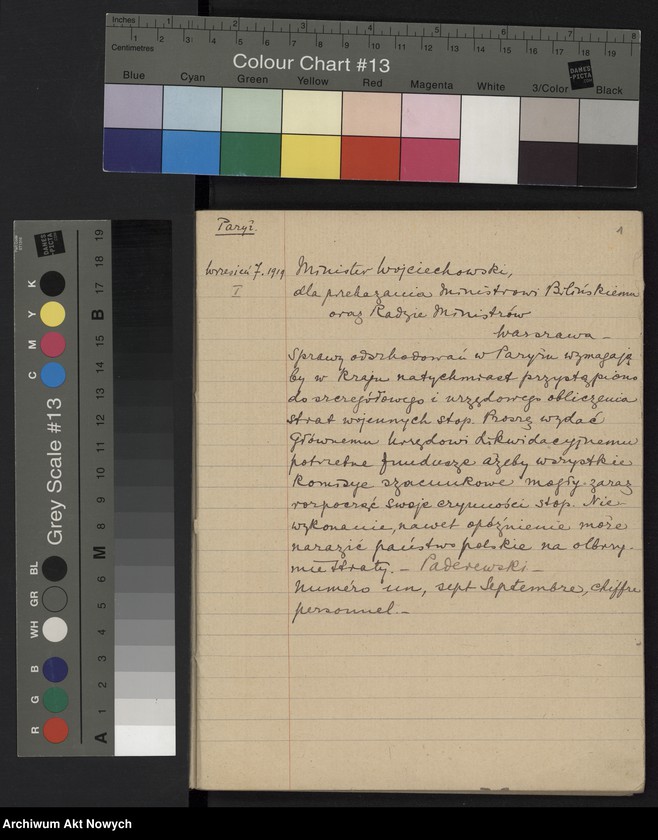 Inches 1 2 3 4 5 6 7 8
Centimetres 1 2 3 4 5 6 7 8 9 10 11 12 13 14 15 16 17 18 19
Colour Chart #13
Blue Cyan Green Yellow Red Magenta White 3/Color Black
DAMES PICTA
Grey Scale #13
R G B WH GR BL C M Y K
A 1 2 3 4 5 6 M 8 9 10 11 12 13 14 15 B 17 18 19
Paryż.
1
Wrzesień 7. 1919
I
Minister Wojciechowski,
dla przekazania Ministrowi Bilińskiemu
oraz Radzie Ministrów
Warszawa –
Sprawy odszkodowań w Paryżu wymagają
by w kraju natychmiast przystąpiono
do szczegółowego i urzędowego obliczenia
strat wojennych stop. Proszę wydać
Głównemu Urzędowi Likwidacyjnemu
potrzebne fundusze ażeby wszystkie
Komisye szacunkowe mogły zaraz
rozpocząć swoje czynności stop. Nie-
wykonanie, nawet opóźnienie może
narazić państwo polskie na olbrzy-
mie straty. – Paderewski –
Numéro un, sept Septembre, chiffre
personnel. –
Archiwum Akt Nowych